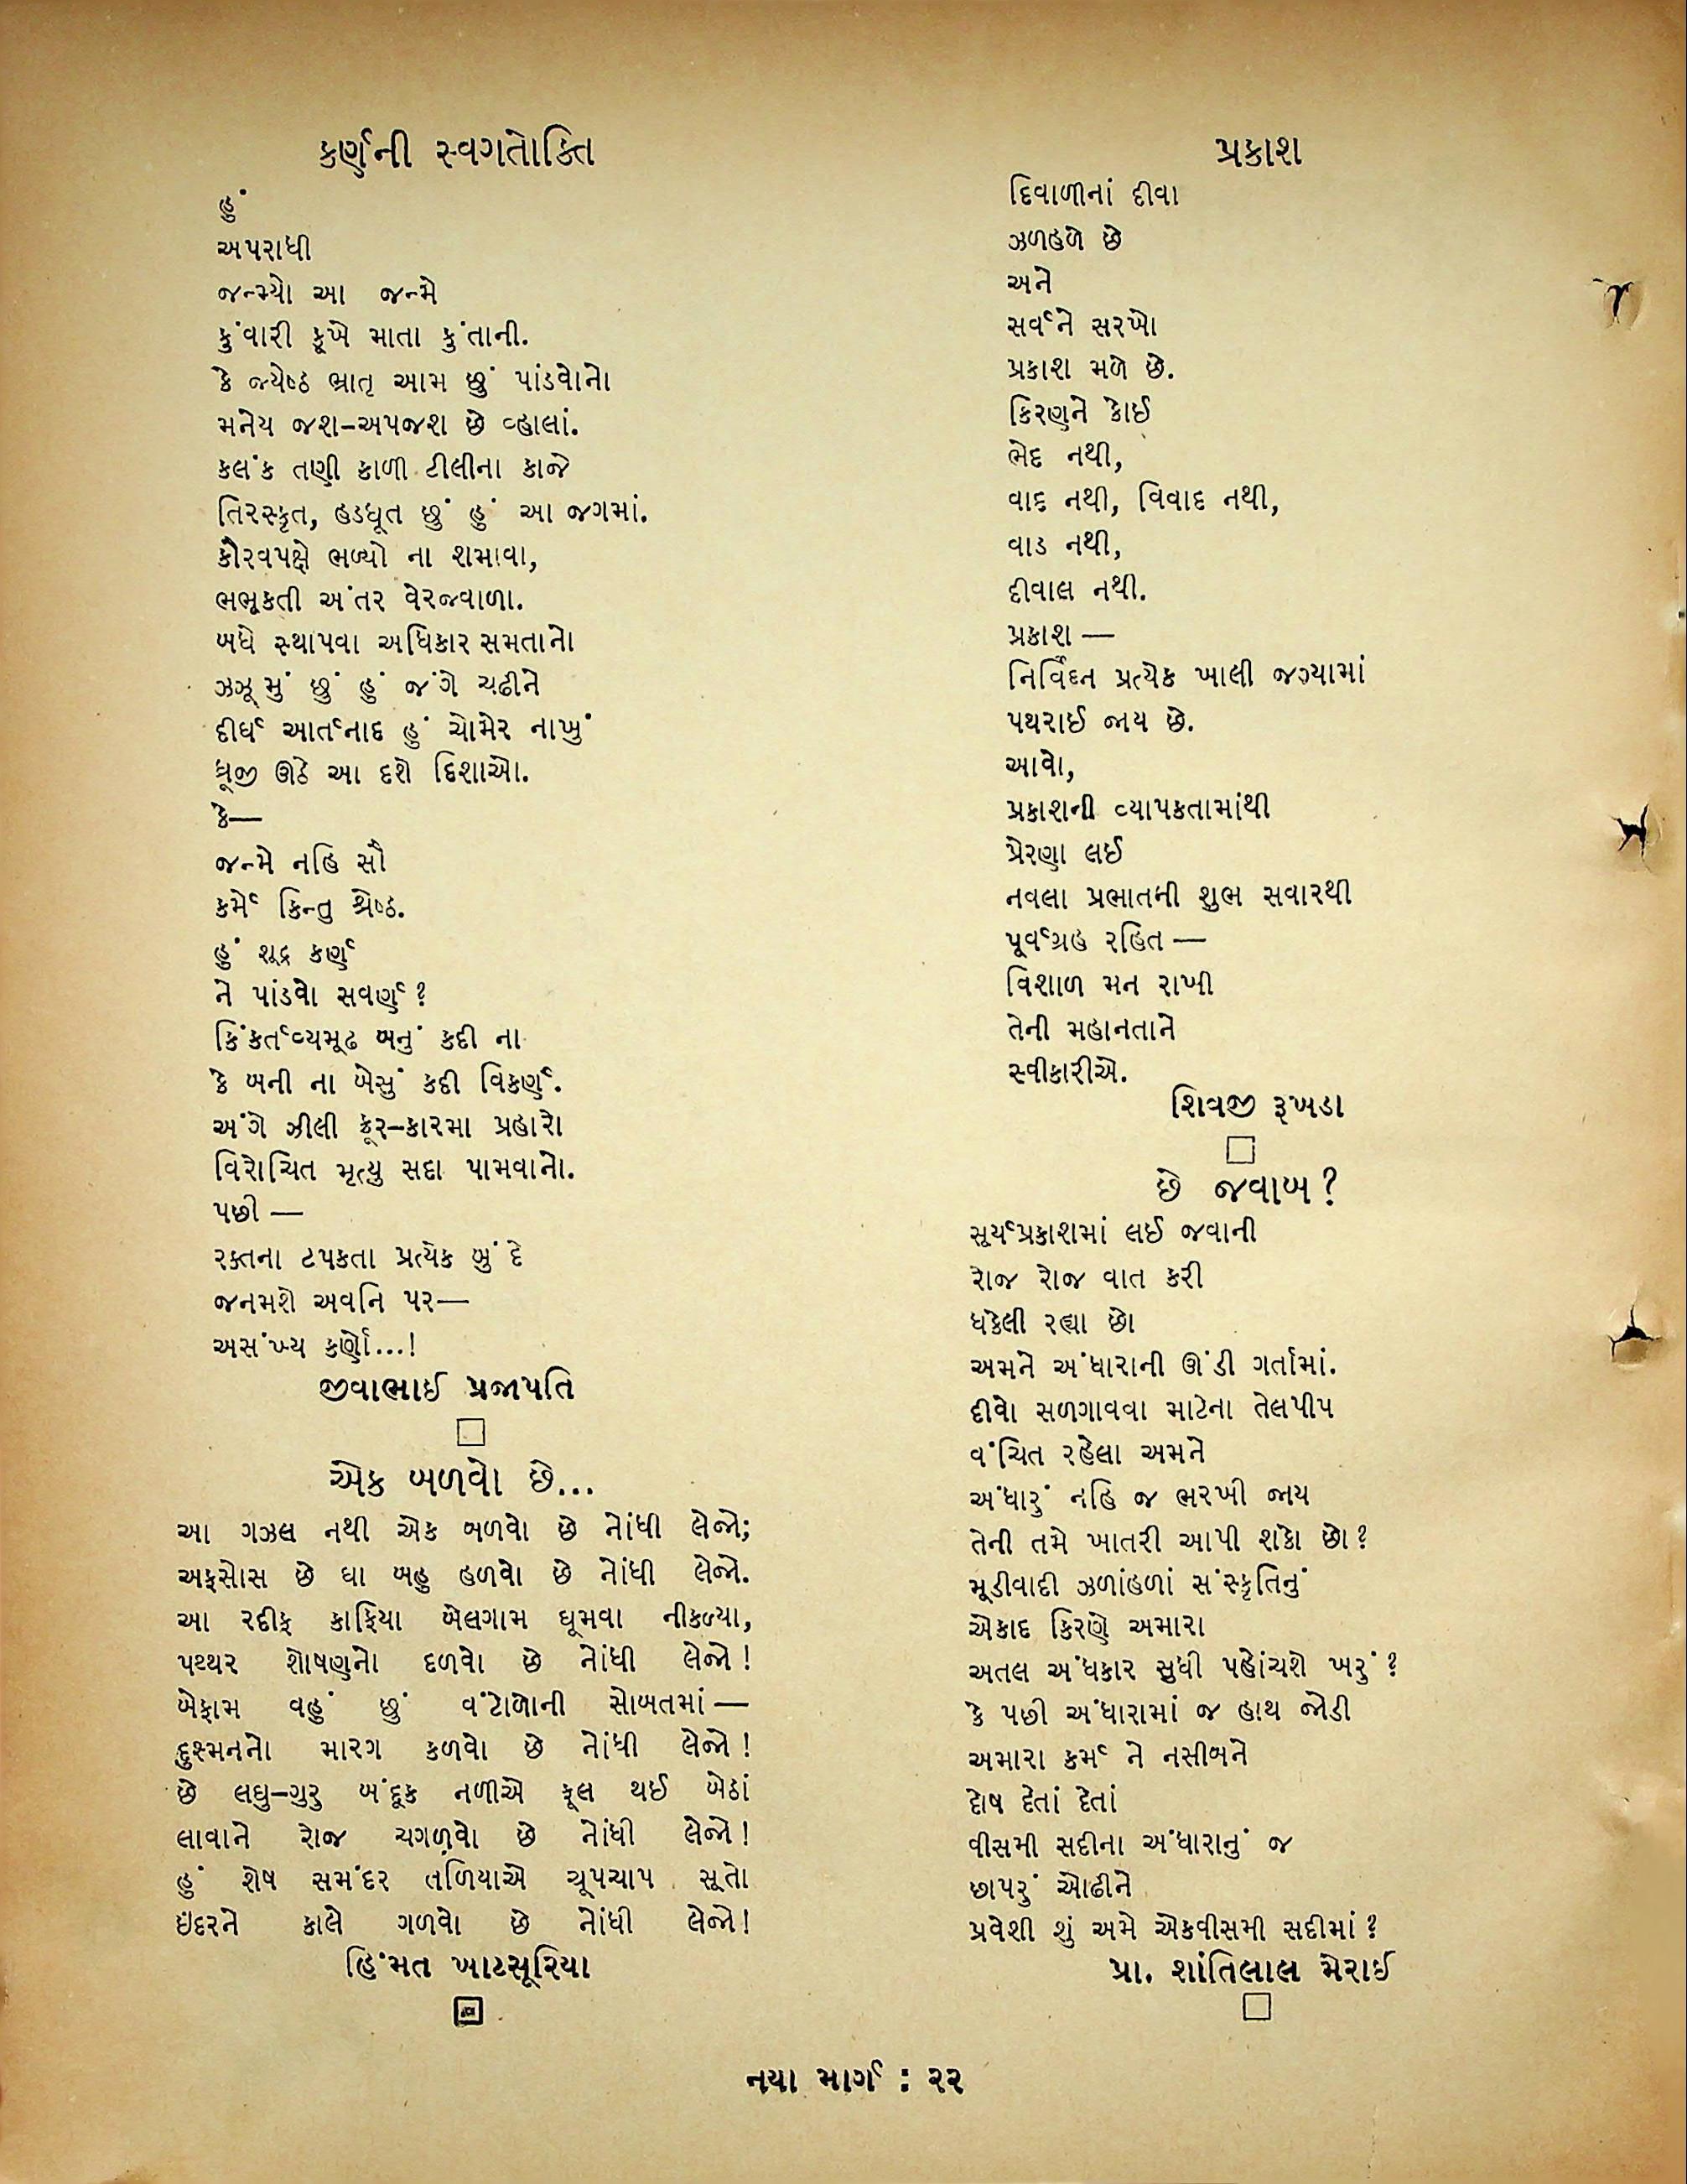 કર્ણની સ્વગતોક્તિ
હું
અપરાધી
જન્મ્યો આ જન્મે
કુંવારી કૂખે માતા કુંતાની.
કે જ્યેષ્ઠ ભ્રાતૃ આમ છું પાંડવોનો
મનેય જશ-અપજશ છે વ્હાલાં.
કલંક તણી કાળી ટીલીના કાજે
તિરસ્કૃત, હડધૂત છું હું આ જગમાં.
કૌરવપક્ષે ભળ્યો ના શમાવા,
ભભૂકતી અંતર વેરજવાળા.
બધે સ્થાપવા અધિકાર સમતાનો
ઝઝૂમું છું હું જંગે ચઢીને
દીર્ઘ આર્તનાદ હું ચોમેર નાખું
ધ્રૂજી ઊઠે આ દશે દિશાઓ.
કે—
જન્મે નહિ સૌ
કર્મે કિન્તુ શ્રેષ્ઠ.
હું શૂદ્ર કર્ણ
ને પાંડવો સવર્ણ?
કિંકર્તવ્યમૂઢ બનું કદી ના
કે બની ના બેસું કદી વિકર્ણ.
અંગે ઝીલી ક્રૂર-કારમા પ્રહારો
વિરોચિત મૃત્યુ સદા પામવાનો.
પછી —
રક્તના ટપકતા પ્રત્યેક બુંદે
જનમશે અવનિ પર—
અસંખ્ય કર્ણો...!
જીવાભાઈ પ્રજાપતિ
એક બળવો છે...
આ ગઝલ નથી એક બળવો છે નોંધી લેજો;
અફસોસ છે ઘા બહુ હળવો છે નોંધી લેજો.
આ રદીફ કાફિયા બેલગામ ઘૂમવા નીકળ્યા,
પથ્થર શોષણનો દળવો છે નોંધી લેજો!
બેફામ વહું છું વંટોળોની સોબતમાં —
દુશ્મનનો મારગ કળવો છે નોંધી લેજો!
છે લઘુ-ગુરુ બંદૂક નળીએ ફૂલ થઈ બેઠાં
લાવાને રોજ ચગળવો છે નોંધી લેજો!
હું શેષ સમંદર તળિયાએ ચૂપચાપ સૂતો
ઇંદરને કાલે ગળવો છે નોંધી લેજો!
હિંમત ખાટસૂરિયા
પ્રકાશ
દિવાળીનાં દીવા
ઝળહળે છે
અને
સર્વને સરખો
પ્રકાશ મળે છે.
કિરણને કોઈ
ભેદ નથી,
વાદ નથી, વિવાદ નથી,
વાડ નથી,
દીવાલ નથી.
પ્રકાશ —
નિર્વિઘ્ન પ્રત્યેક ખાલી જગ્યામાં
પથરાઈ જાય છે.
આવો,
પ્રકાશની વ્યાપકતામાંથી
પ્રેરણા લઈ
નવલા પ્રભાતની શુભ સવારથી
પૂર્વગ્રહ રહિત —
વિશાળ મન રાખી
તેની મહાનતાને
સ્વીકારીએ.
શિવજી રૂખડા
છે જવાબ?
સૂર્યપ્રકાશમાં લઈ જવાની
રોજ રોજ વાત કરી
ધકેલી રહ્યા છો
અમને અંધારાની ઊંડી ગર્તામાં.
દીવો સળગાવવા માટેના તેલપીપ
વંચિત રહેલા અમને
અંધારું નહિ જ ભરખી જાય
તેની તમે ખાતરી આપી શકો છો?
મૂડીવાદી ઝળાંહળાં સંસ્કૃતિનું
એકાદ કિરણે અમારા
અતલ અંધકાર સુધી પહોંચશે ખરું?
કે પછી અંધારામાં જ હાથ જોડી
અમારા કર્મ ને નસીબને
દોષ દેતાં દેતાં
વીસમી સદીના અંધારાનું જ
છાપરું ઓઢીને
પ્રવેશી શું અમે એકવીસમી સદીમાં?
પ્રા. શાંતિલાલ મેરાઈ
નયા માર્ગ : ૨૨